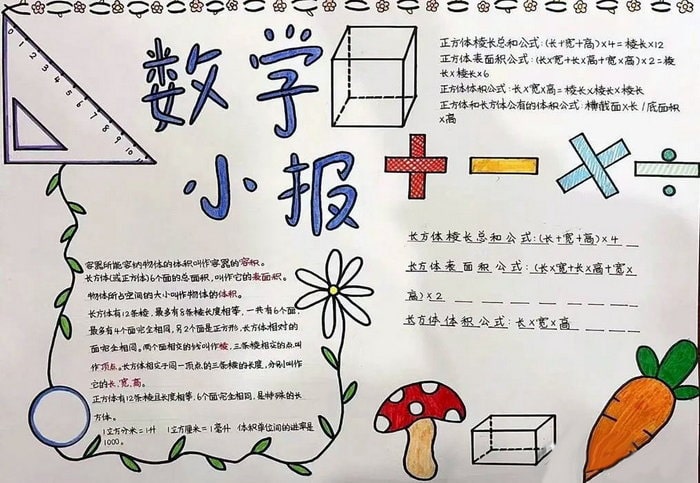 0 1 2 3 4 5 6 7 8 9 10
数学
小报
正方体棱长总和公式:(长+宽+高)×4=棱长×12
正方体表面积公式:(长×宽+长×高+宽×高)×2=棱
长×棱长×6
正方体体积公式:长×宽×高=棱长×棱长×棱长
正方体和长方体公有的体积公式:横截面×长/底面积
×高
长方体棱长总和公式:(长+宽+高)×4
长方体表面积公式:(长×宽+长×高+宽×
高)×2
长方体体积公式:长×宽×高
容器所能容纳物体的体积叫作容器的容积。
长方体(或正方体)6个面的总面积,叫作它的表面积。
物体所占空间的大小叫作物体的体积。
长方体有12条棱,最多有8条棱长度相等,一共有6个面,
最多有4个面完全相同,另2个面是正方形,长方体相对的
面完全相同。两个面相交的线叫作棱,三条棱相交的点叫
作顶点。长方体相交于同一顶点的三条棱的长度,分别叫作
它的长,宽,高。
正方体有12条棱且长度相等,6个面完全相同,是特殊的长
方体。
1立方分米=1升 1立方厘米=1毫升 体积单位间的进率是
1000。